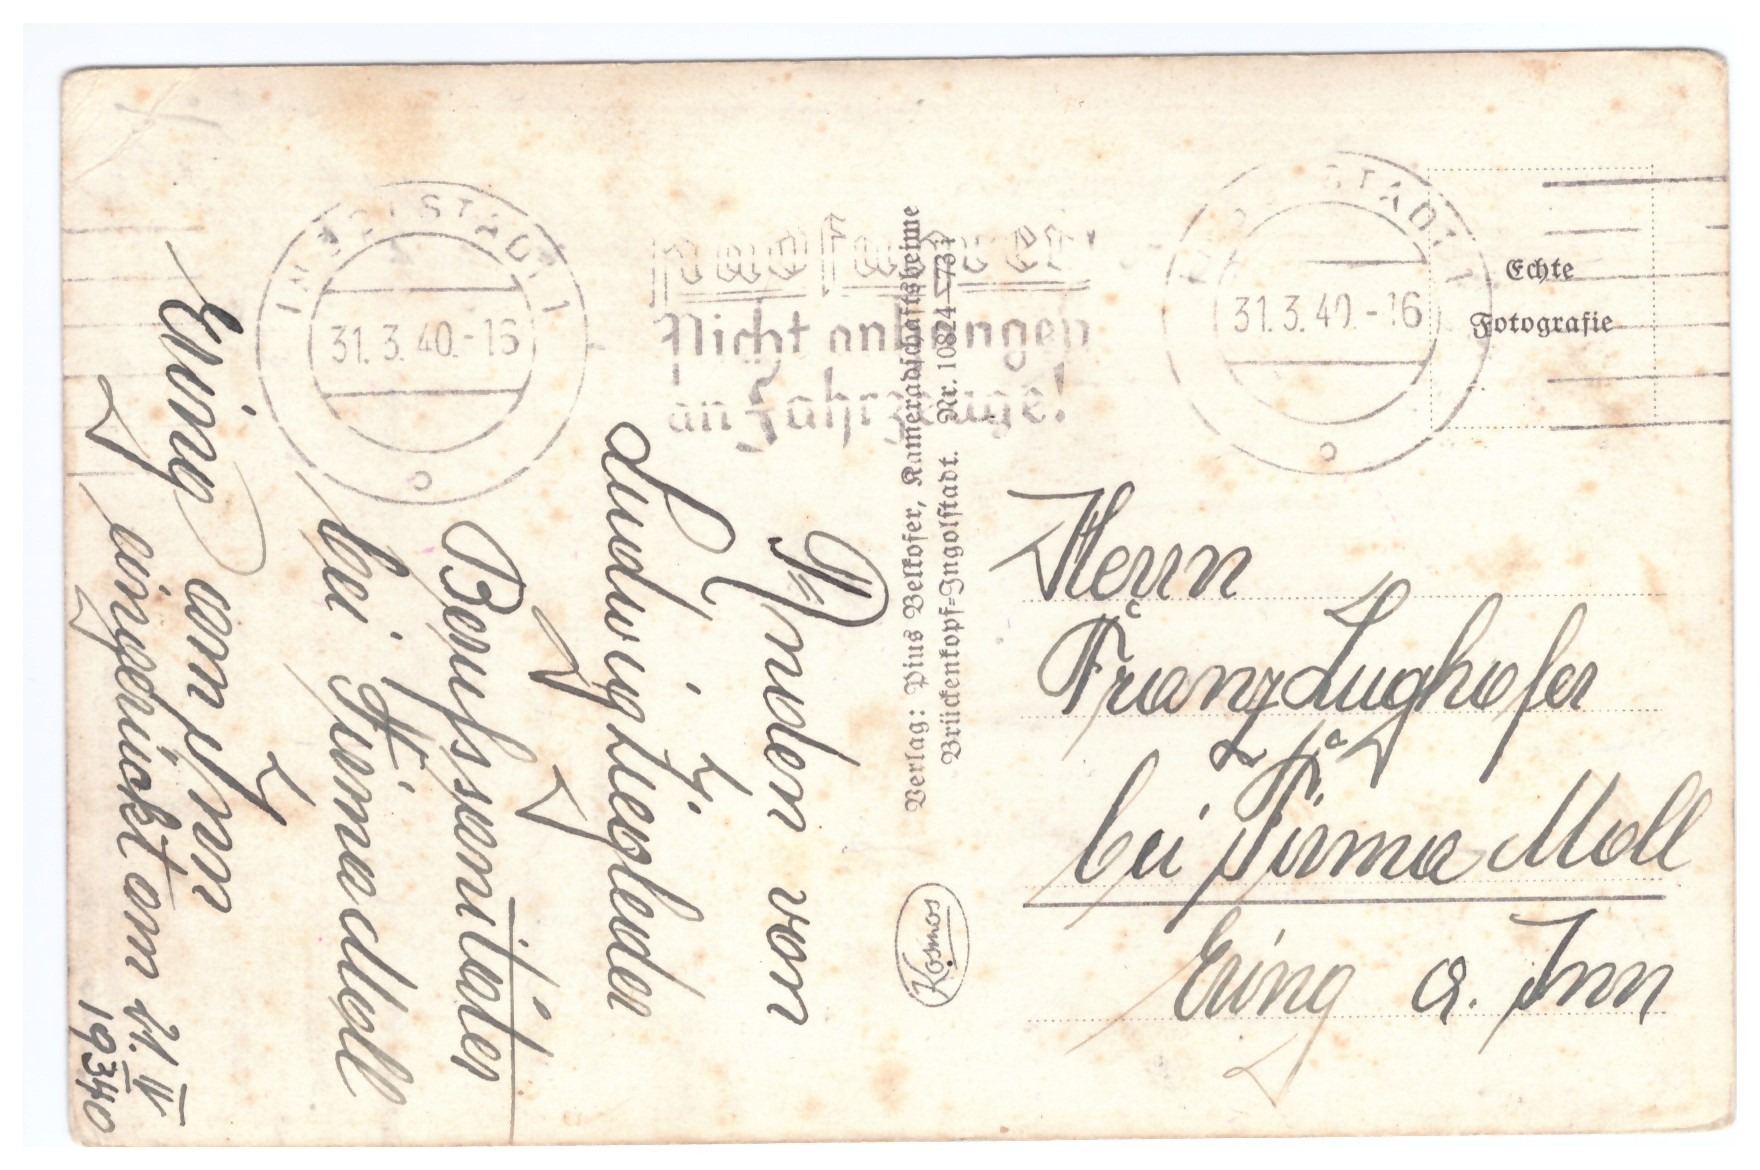 INGOLSTADT 1
31.3.40.-16
Radfahrer
Nicht anhängen
an Fahrzeuge!
INGOLSTADT 1
31.3.40.-16
Echte
Fotografie
Herrn
Franz Lughofer
bei Firma Moll
Ering a. Inn
Verlag: Pius Belkofer, Kameradschaftsheime
Brückenkopf-Ingolstadt. Nr. 10824
Kosmos
von
Ludwig Ziegleder
bei Firma Moll
Ering am Inn
eingerückt am 21. IV
1940